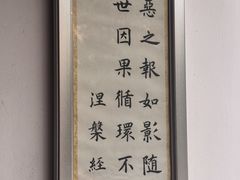 惡之報如影隨
世因果循環不
涅槃經